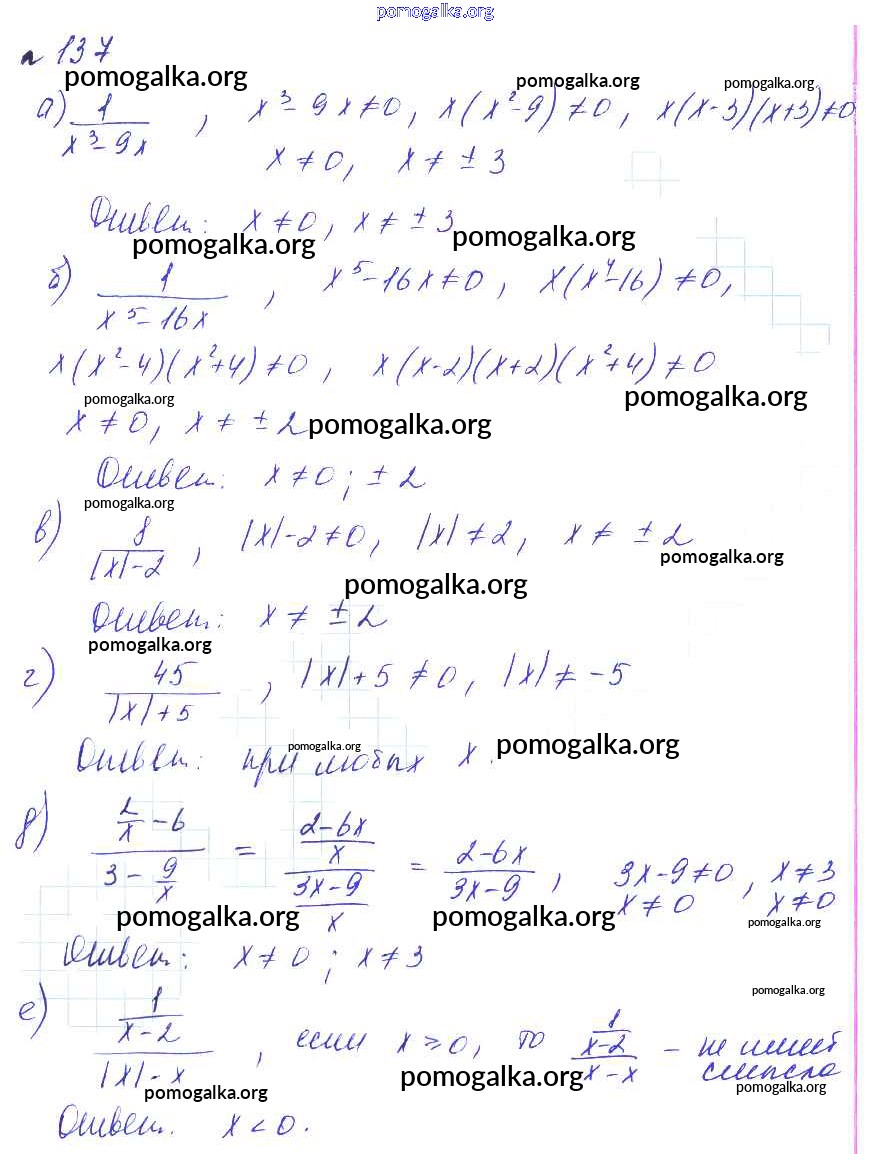 pomogalka.org
№ 137
pomogalka.org pomogalka.org pomogalka.org
а) 1/(x³-9x) , x³-9x≠0, x(x²-9)≠0, x(x-3)(x+3)≠0
x≠0, x≠±3
Ответ: x≠0, x≠±3
pomogalka.org pomogalka.org
б) 1/(x⁵-16x) , x⁵-16x≠0, x(x⁴-16)≠0,
x(x²-4)(x²+4)≠0, x(x-2)(x+2)(x²+4)≠0
pomogalka.org pomogalka.org
x≠0, x≠±2 pomogalka.org
Ответ: x≠0; ±2
pomogalka.org
в) 8/(|x|-2) , |x|-2≠0, |x|≠2, x≠±2
pomogalka.org
pomogalka.org
Ответ: x≠±2
pomogalka.org
г) 45/(|x|+5) , |x|+5≠0, |x|≠-5
pomogalka.org pomogalka.org
Ответ: при любых x.
д) (2/x-6)/(3-9/x) = ((2-6x)/x)/((3x-9)/x) = (2-6x)/(3x-9) , 3x-9≠0, x≠3
x≠0 x≠0
pomogalka.org pomogalka.org pomogalka.org
Ответ: x≠0; x≠3
pomogalka.org
е) (1/(x-2))/(|x|-x) , если x≥0, то (1/(x-2))/(x-x) - не имеет
смысла
pomogalka.org pomogalka.org pomogalka.org
Ответ. x<0.